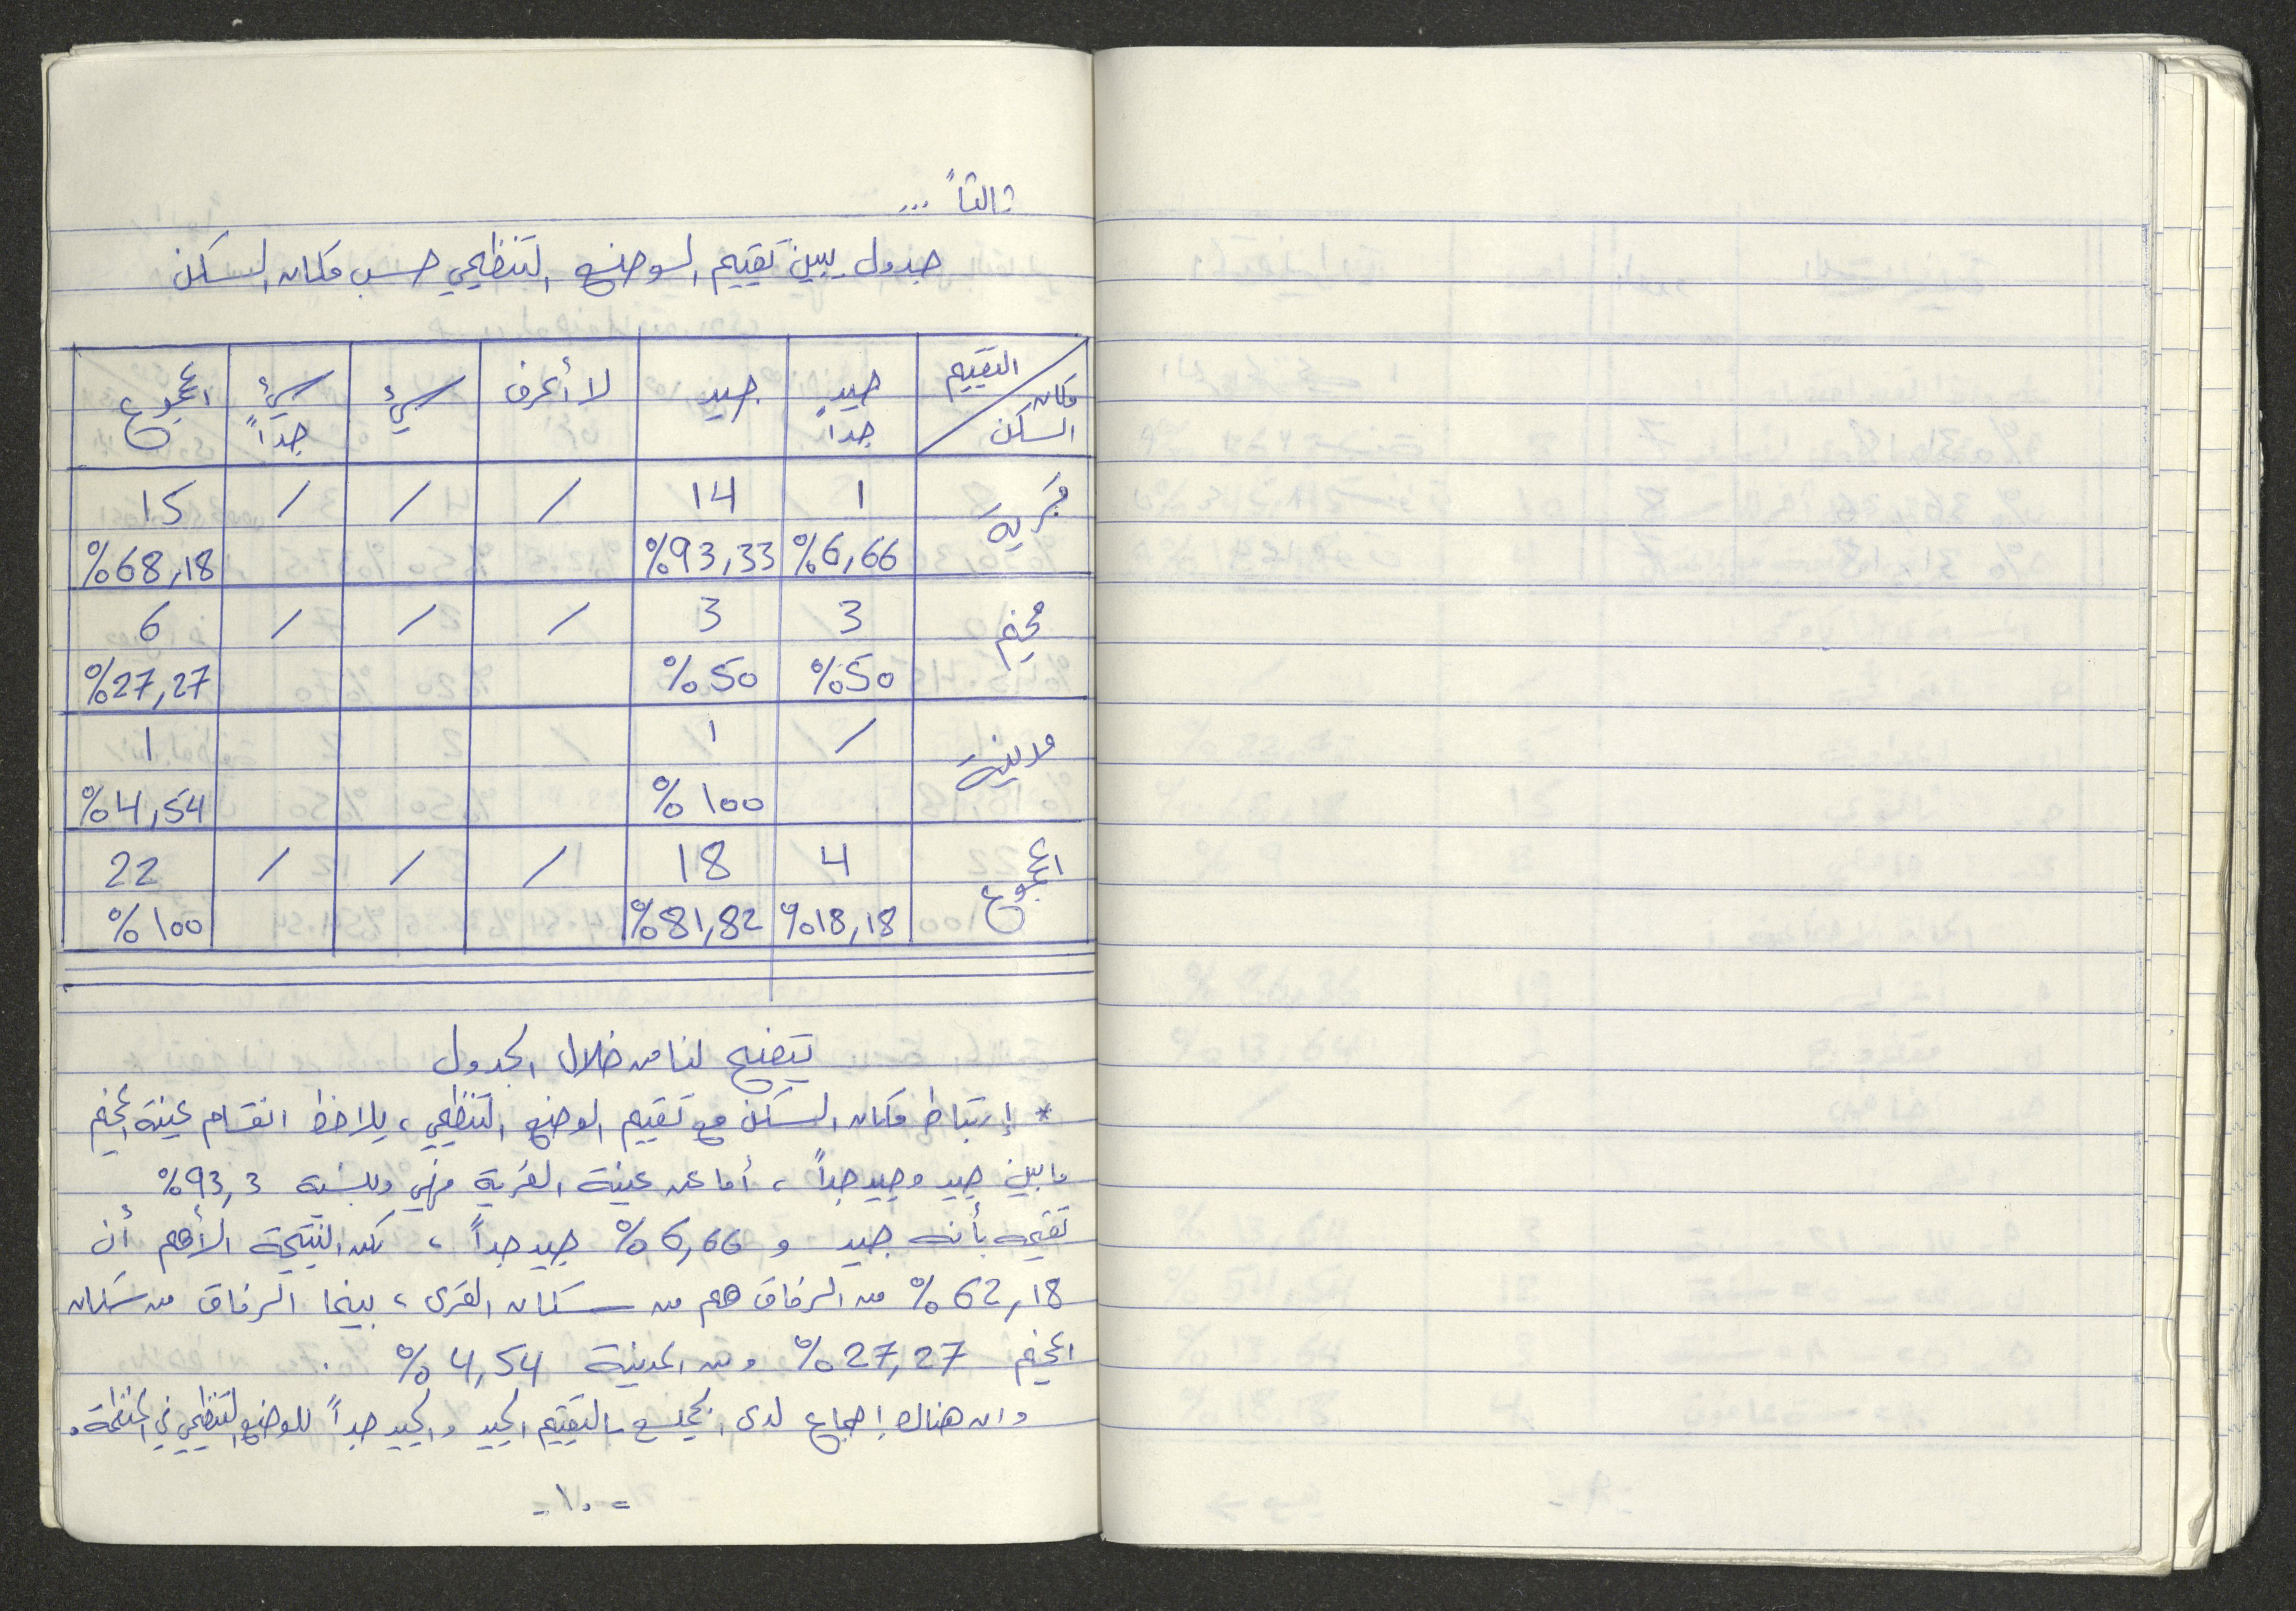 ثالثاً ...
جدول يبين تقييم الوضع التنظيمي حسب مكان السكن
التقييم / مكان السكن | جيد جداً | جيد | لا أعرف | سيء | سيء جداً | المجموع
قرية | 1 | 14 | / | / | / | 15
%6,66 | %93,33 | %68,18
مخيم | 3 | 3 | / | / | / | 6
%50 | %50 | %27,27
مدينة | / | 1 | 1
%100 | %4,54
المجموع | 4 | 18 | / | / | / | 22
%18,18 | %81,82 | %100
يتضح لنا من خلال الجدول
* إرتباط مكان السكن مع تقييم الوضع التنظيمي، يلاحظ انقسام عينة المخيم
ما بين جيد وجيد جداً، أما عن عينة القرية فهي وبنسبة 93,3%
تقيمه بأنه جيد و 6,66% جيد جداً، لكن النتيجة الأهم أن
62,18% من الرفاق هم من سكان القرى، بينما الرفاق من سكان
المخيم 27,27% ومن المدينة 4,54%.
وان هناك إجماع لدى الجميع بالتقييم الجيد والجيد جداً للوضع التنظيمي في المنظمة.
- ١٠ -